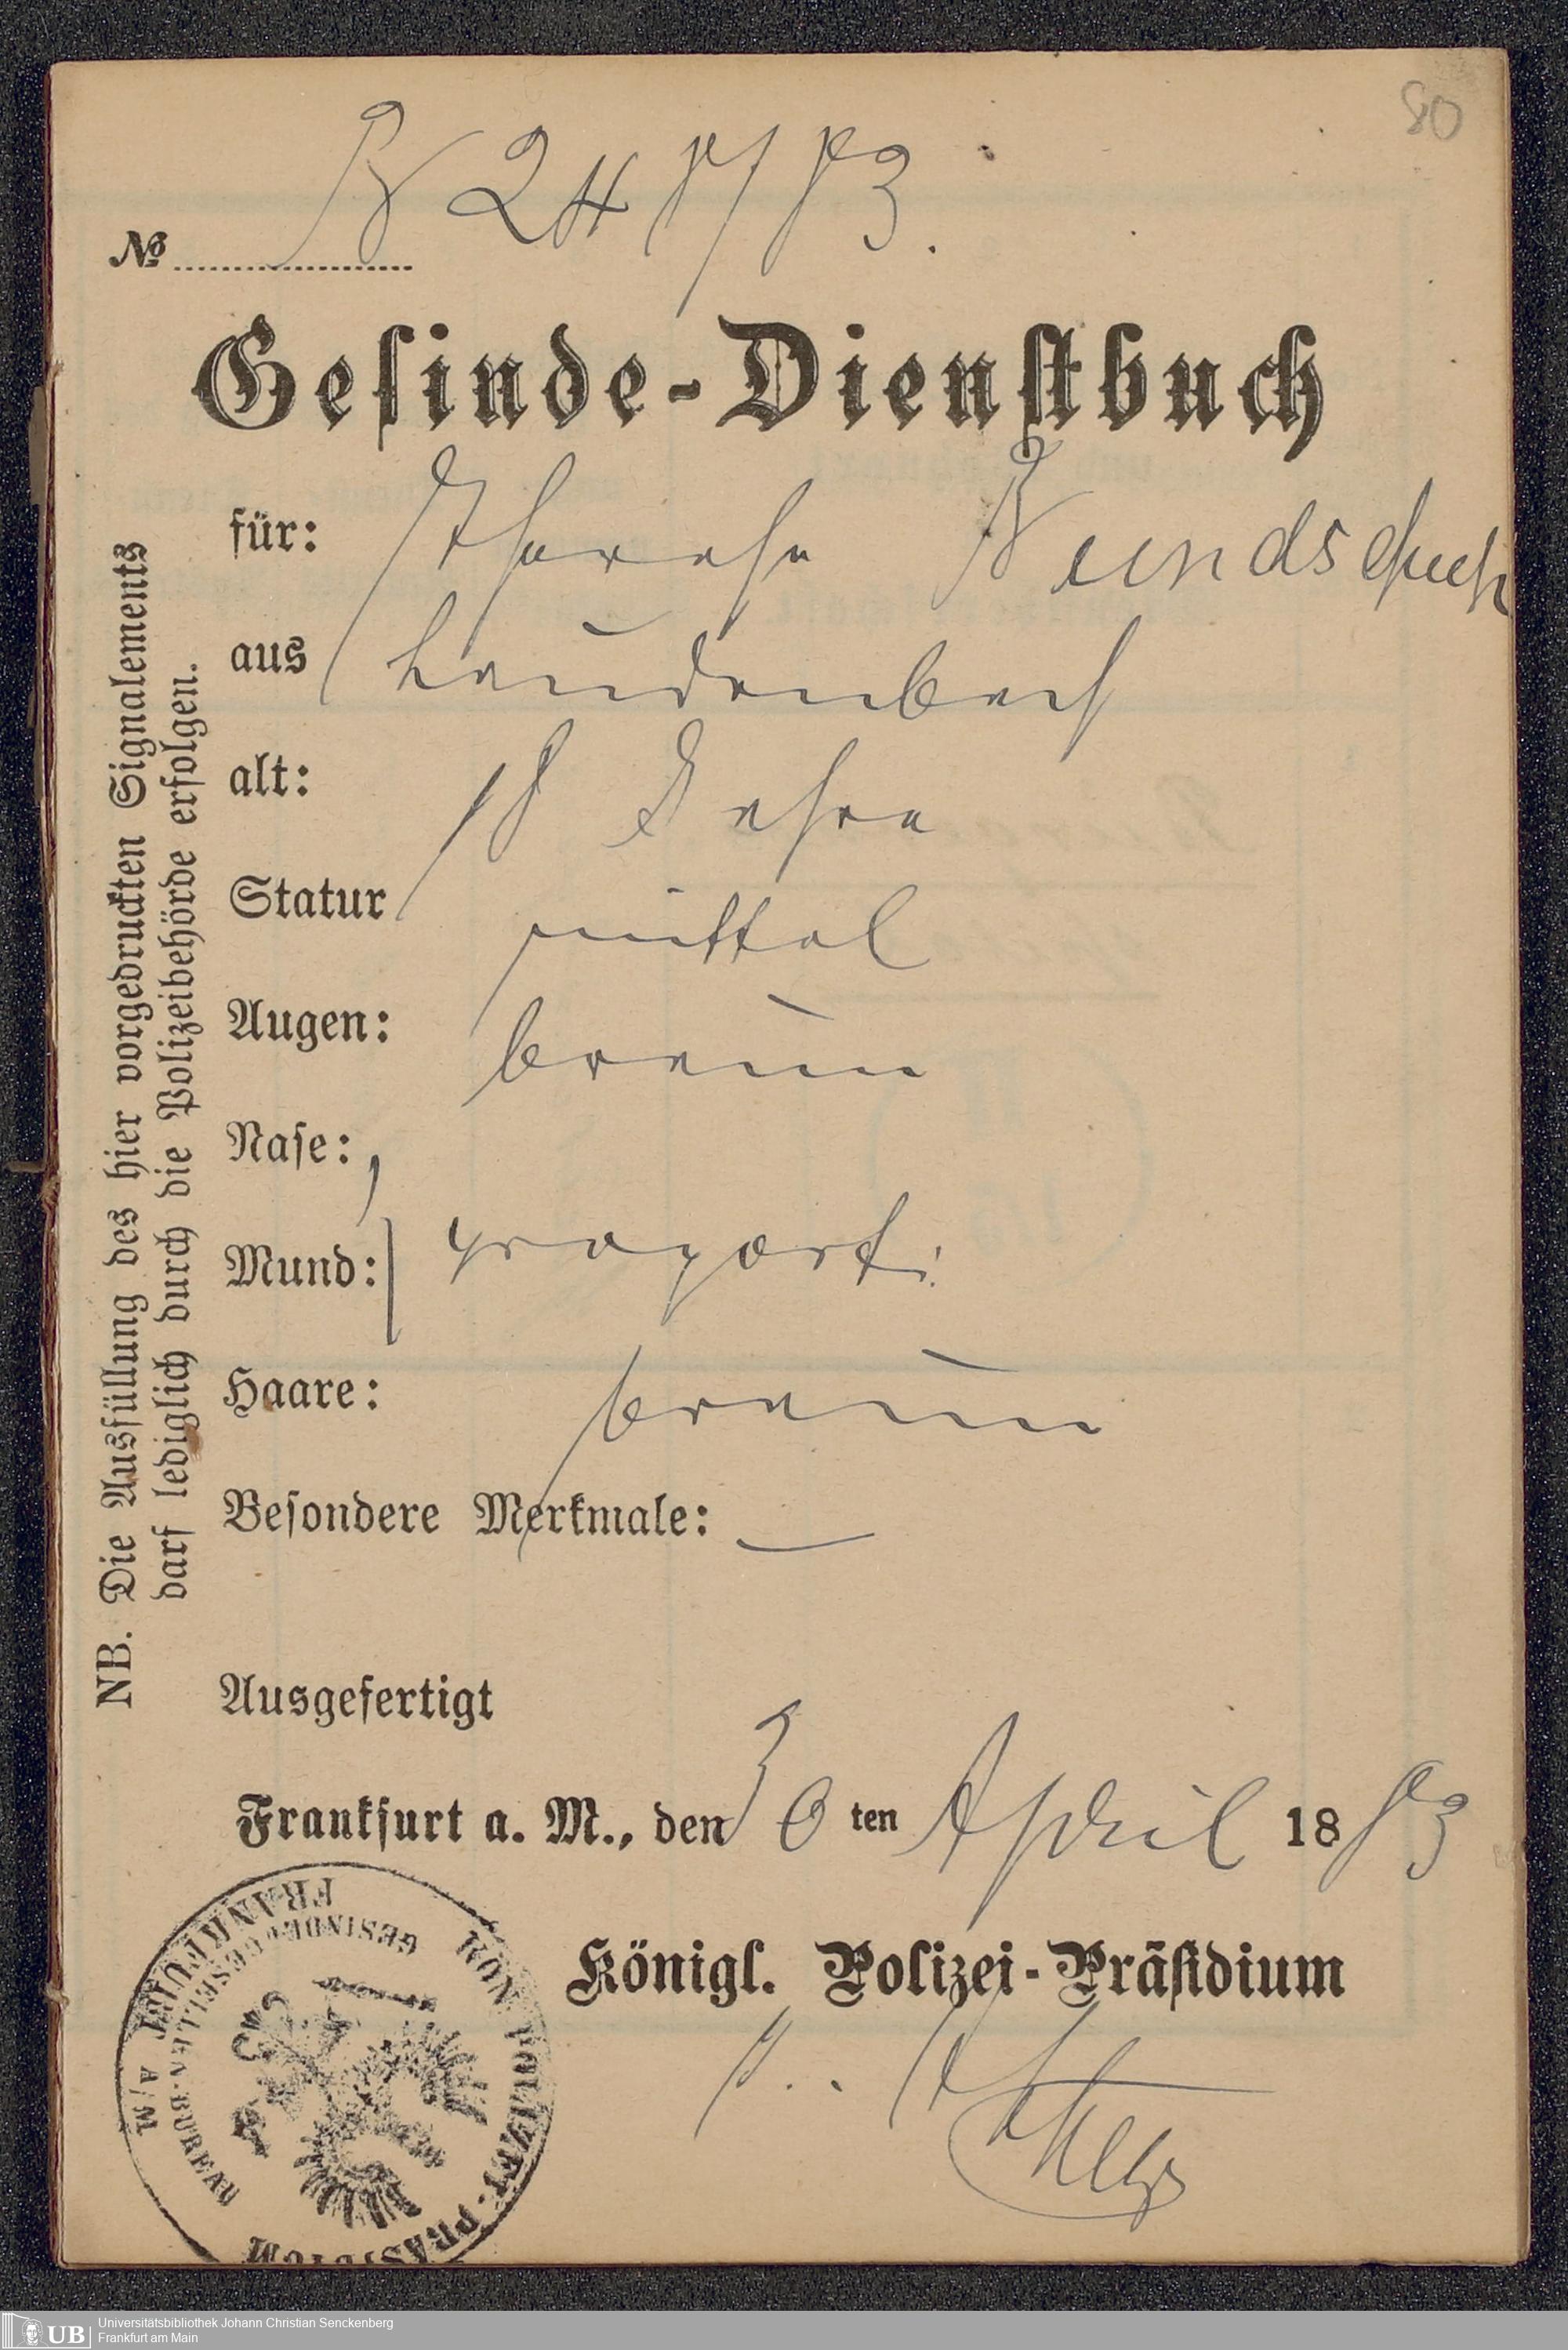 80
№ B 248/83.
Gesinde-Dienstbuch
für: Therese Bundschuh
aus Laudenbach
alt: 18 Jahre
Statur mittel
Augen: braun
Nase:
Mund: proport:
Haare: braun
Besondere Merkmale: —
Ausgefertigt
Frankfurt a. M., den 30 ten April 18 83
Königl. Polizei-Präsidium
NB. Die Ausfüllung des hier vorgedruckten Signalements
darf lediglich durch die Polizeibehörde erfolgen.
KÖN. POLIZEI-PRÄSIDIUM
FRANKFURT a/M
GESINDE
BUREAU
UB
Universitätsbibliothek Johann Christian Senckenberg
Frankfurt am Main